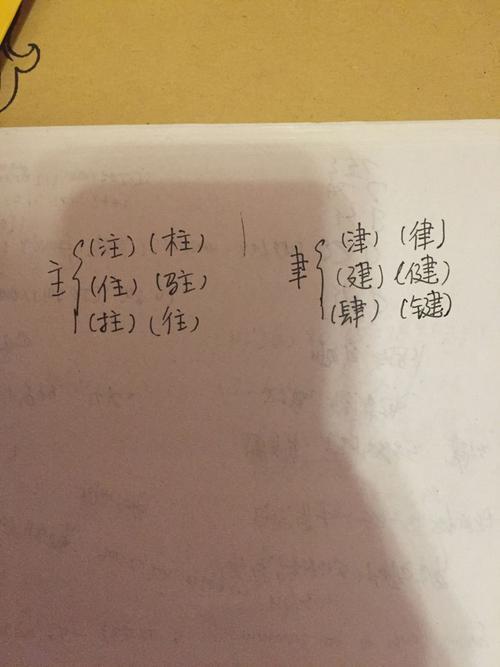 (注)(柱) (津)(律)
主{(住)(驻) 聿{(建)(健)
(拄)(往) (肆)(键)